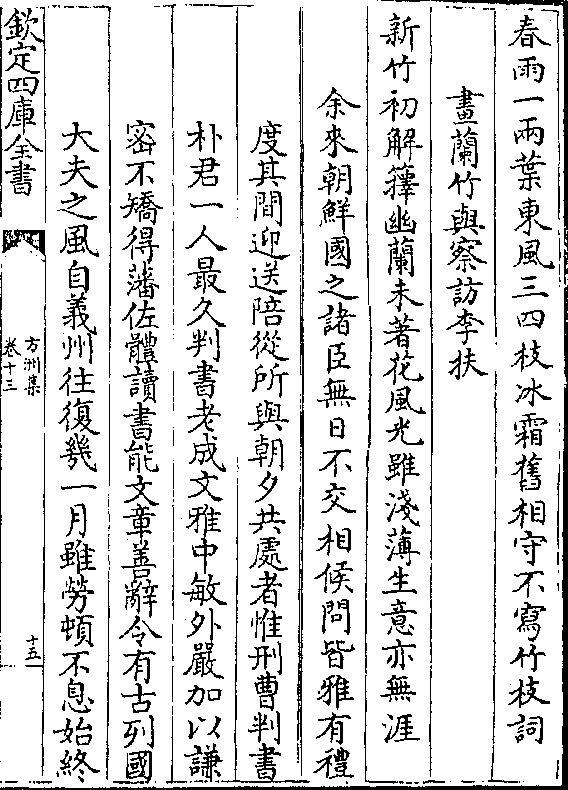 春雨一兩葉東風三四枝冰霜舊相守不寫竹枝詞
畫蘭竹與察訪李扶
新竹初解籜幽蘭未著花風光雖淺薄生意亦無涯
余來朝鮮國之諸臣無日不交相候問皆雅有禮
度其間迎送陪從所與朝夕共處者惟刑曹判書
朴君一人最久判書老成文雅中敏外嚴加以謙
密不矯得藩佐體讀書能文章善辭令有古列國
大夫之風自義州往復幾一月雖勞頓不息始終
欽定四庫全書
方洲集
卷十三
十五